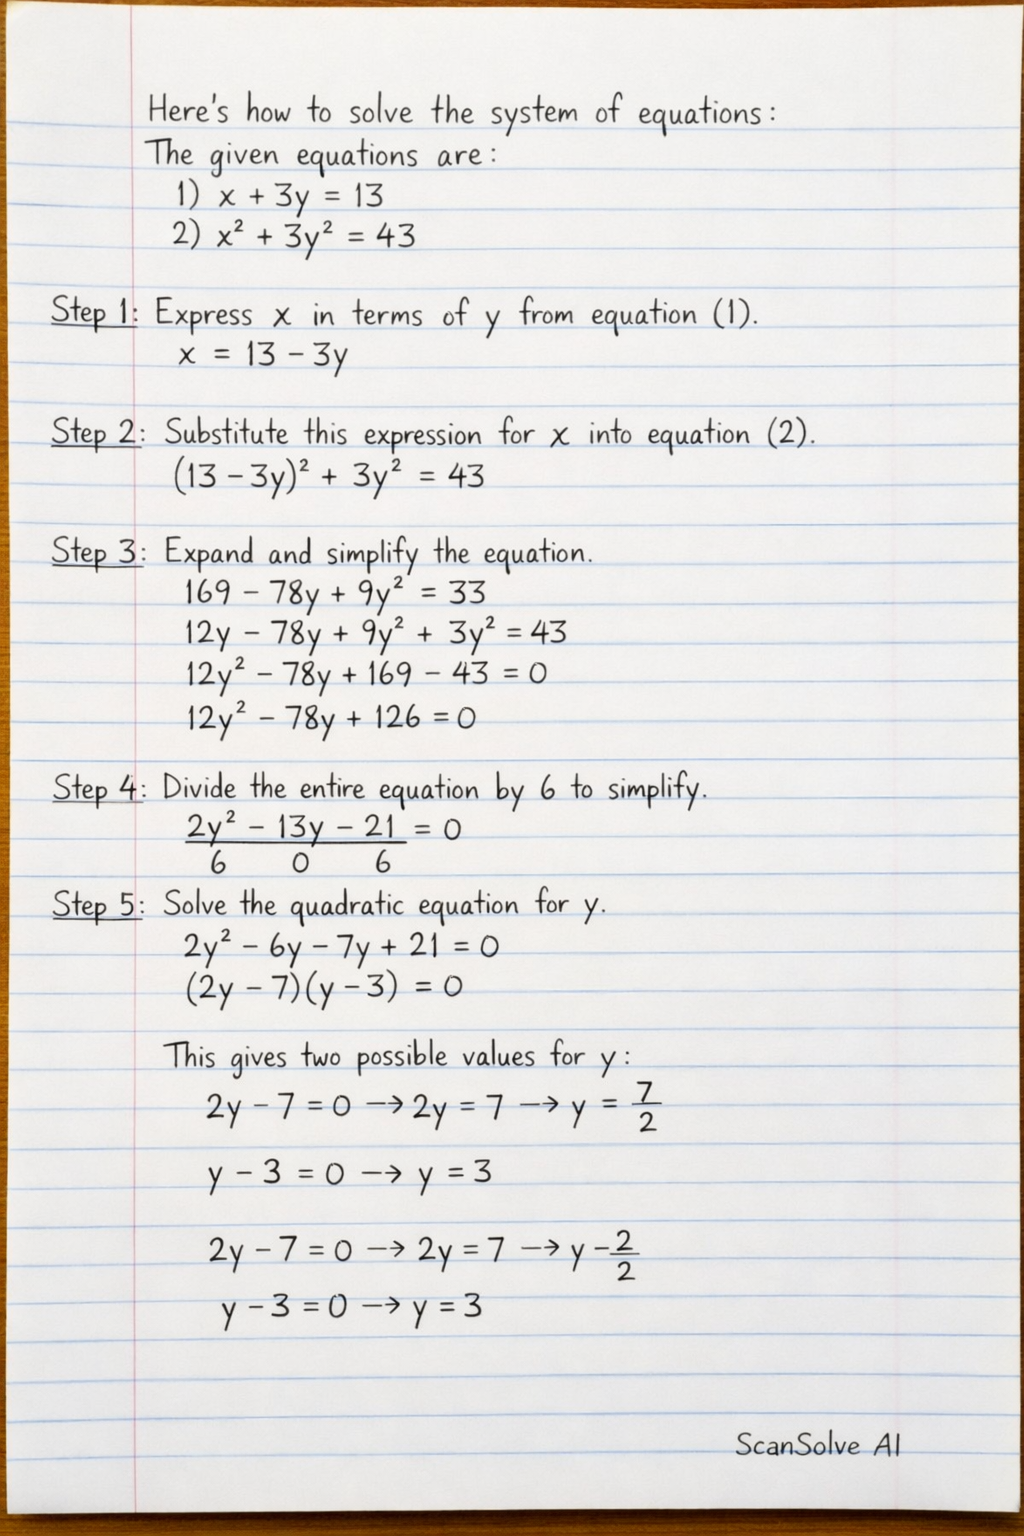 Here's how to solve the system of equations:
The given equations are:
1) x + 3y = 13
2) x² + 3y² = 43
Step 1: Express x in terms of y from equation (1).
x = 13 - 3y
Step 2: Substitute this expression for x into equation (2).
(13 - 3y)² + 3y² = 43
Step 3: Expand and simplify the equation.
169 - 78y + 9y² = 33
12y - 78y + 9y² + 3y² = 43
12y² - 78y + 169 - 43 = 0
12y² - 78y + 126 = 0
Step 4: Divide the entire equation by 6 to simplify.
2y² - 13y - 21 = 0
6 0 6
Step 5: Solve the quadratic equation for y.
2y² - 6y - 7y + 21 = 0
(2y - 7)(y - 3) = 0
This gives two possible values for y:
2y - 7 = 0 → 2y = 7 → y = 7/2
y - 3 = 0 → y = 3
2y - 7 = 0 → 2y = 7 → y - 2/2
y - 3 = 0 → y = 3
ScanSolve AI